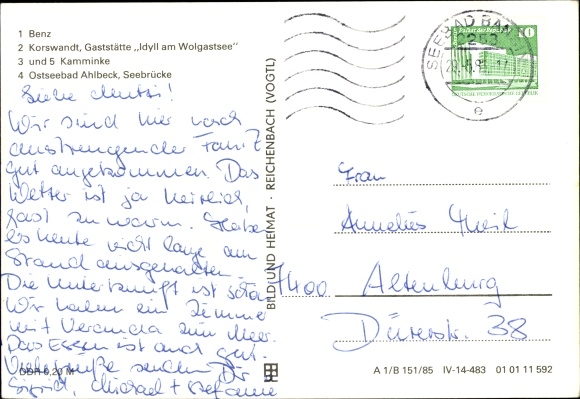 1 Benz
2 Korswandt, Gaststätte „Idyll am Wolgastsee"
3 und 5 Kamminke
4 Ostseebad Ahlbeck, Seebrücke
Liebe
Wir sind hier nach
anstrengender Fahrt
gut angekommen. Das
Wetter ist ja herrlich,
fast zu warm. Haben
es heute nicht lange am
Strand ausgehalten.
Die Unterkunft ist schön
Wir haben ein Zimmer
mit Veranda zum Meer.
Das Essen ist auch gut.
Viele Grüße senden Dir
Sigrid, Michael + Stefanie
DDR 0,20 M
BILD UND HEIMAT · REICHENBACH (VOGTL)
SEEBAD
2253
e
Palast der Republik
10
DEUTSCHE DEMOKRATISCHE REPUBLIK
Frau
Annelies
7400 Altenburg
Dürerstr. 38
A 1/B 151/85 IV-14-483 01 01 11 592